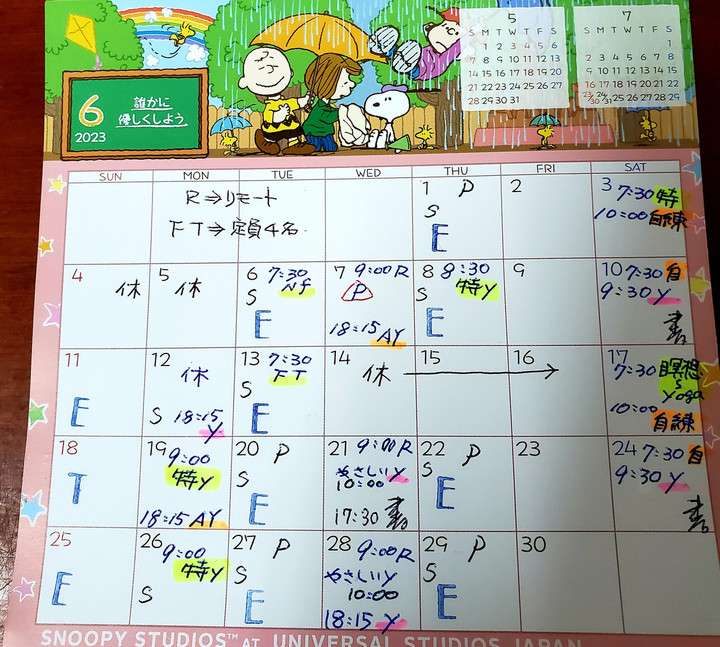 6
2023
誰かに
優しくしよう
5
S M T W T F S
1 2 3 4 5 6
7 8 9 10 11 12 13
14 15 16 17 18 19 20
21 22 23 24 25 26 27
28 29 30 31
7
S M T W T F S
1
2 3 4 5 6 7 8
9 10 11 12 13 14 15
16 17 18 19 20 21 22
23/30 24/31 25 26 27 28 29
SUN MON TUE WED THU FRI SAT
R⇒リモート
FT⇒定員4名
1 P
S
E
2
3 7:30 特
10:00 自練
4 休
5 休
6 7:30
Nf
S
E
7 9:00 R
P
18:15 AY
8 8:30
特Y
S
E
9
10 7:30 自
9:30 Y
書
11
E
12
休
S 18:15
Y
13 7:30
FT
S
E
14 休
15
16
17
7:30 瞑想
S
Yoga
10:00
自練
18
T
19 9:00
特Y
18:15 AY
20 P
S
E
21 9:00 R
やさしいY
10:00
17:30 書
22 P
S
E
23
24 7:30 自
9:30 Y
書
25
E
26 9:00
特Y
S
27 P
S
E
28 9:00 R
やさしいY
10:00
18:15 Y
29 P
S
E
30
SNOOPY STUDIOS™ AT UNIVERSAL STUDIOS JAPAN